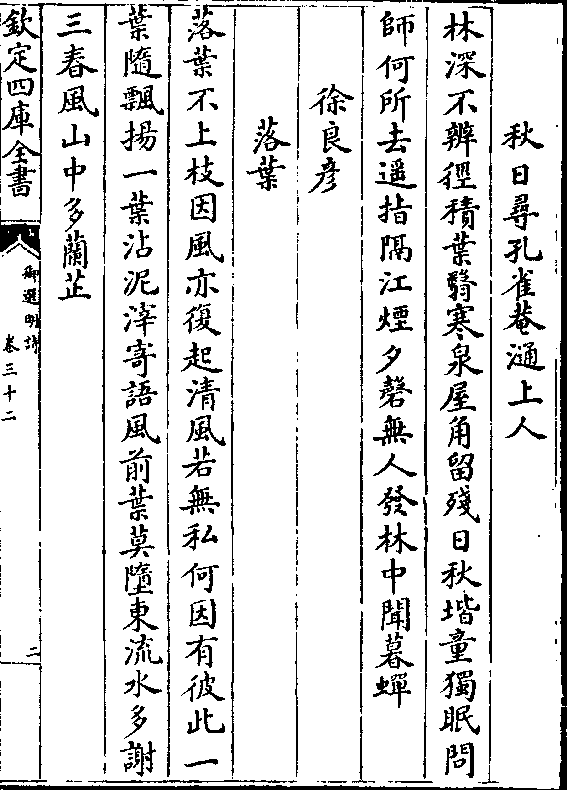 秋日尋孔雀菴濄上人
林深不辨徑積葉翳寒泉屋角留殘日秋堦童獨眠問
師何所去遥指隔江煙夕磬無人發林中聞暮蟬
徐良彦
落葉
落葉不上枝因風亦復起清風若無私何因有彼此一
葉隨飄揚一葉沾泥滓寄語風前葉莫墮東流水多謝
三春風山中多蘭芷
欽定四庫全書
御選明詩
卷三十二
二